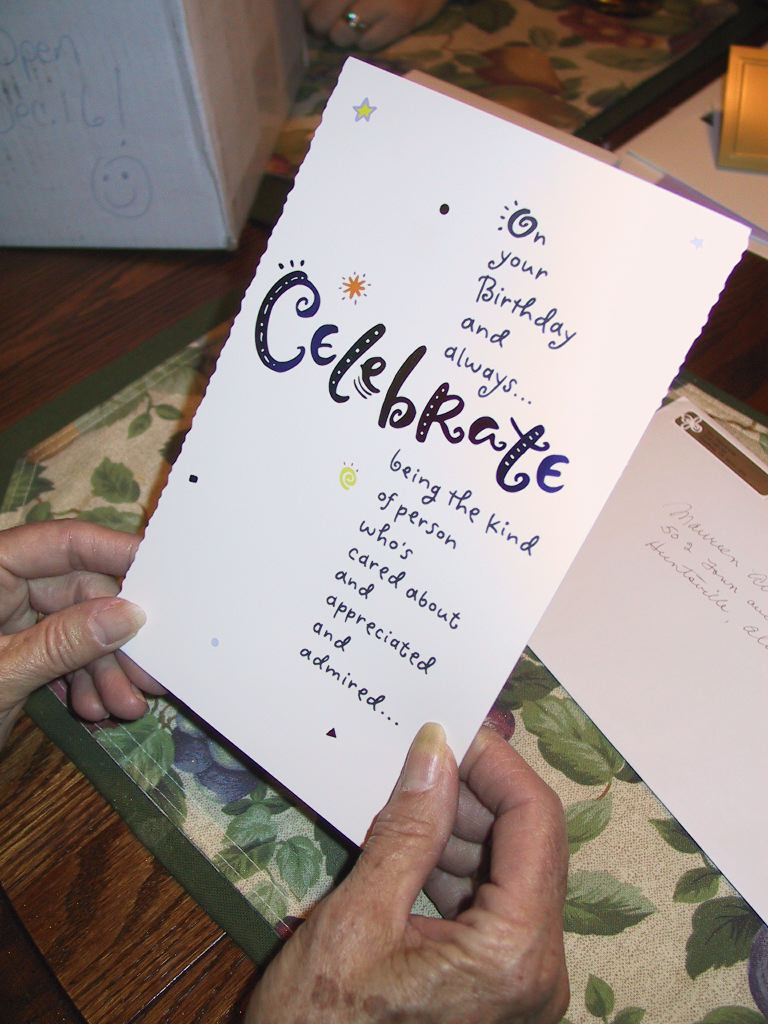 Open
Dec. 16!
On
your
Birthday
and
always...
CELEBRATE
being the kind
of person
who's
cared about
and
appreciated
and
admired...
Maureen
502
Huntsville, Al